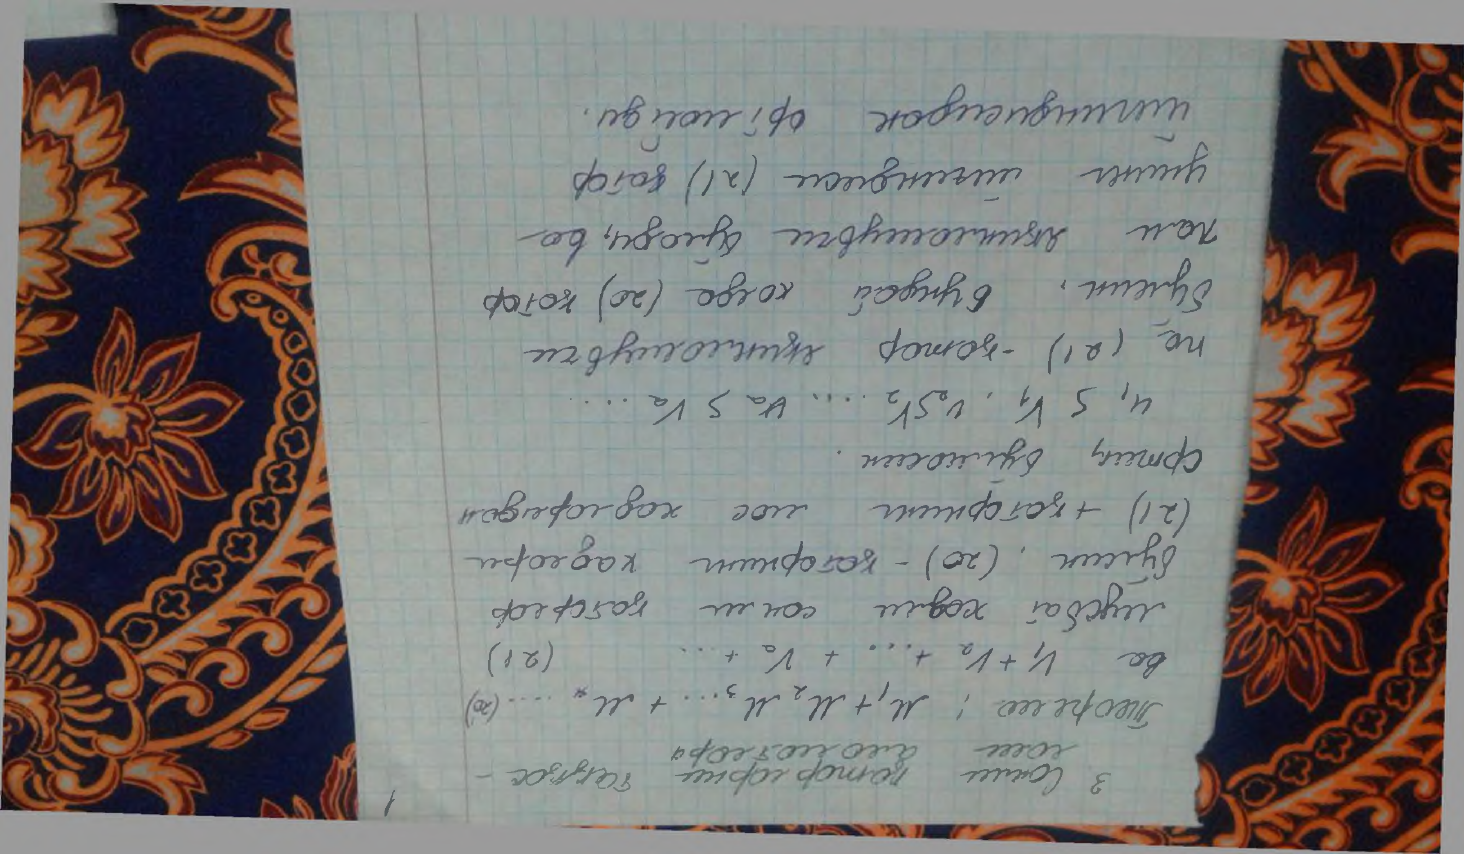 1
3 Сонли қаторларни таққос-
лаш аломатлари
Теорема; M₁ + M₂ M₃ ... + Mₙ .... (20)
ва V₁ + V₂ + .... + Vₙ + ... (21)
мусбат ҳадли сонли қаторлар
бўлсин. (20) - қаторнинг ҳадлари
(21) + қаторнинг мос ҳадларидан
ортиқ бўлмасин.
u₁ ≤ V₁, u₂ ≤ V₂ .... uₙ ≤ Vₙ ....
(21) - қатор яқинлашувчи
бўлсин, бундай ҳолда (20) қатор
хам яқинлашувчи бўлади, ва
унинг йиғиндиси (21) қатор
йиғиндисидан ортмайди.